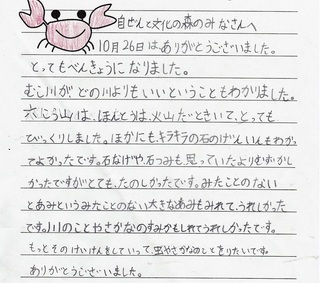 自ぜんと文化の森のみなさんへ
10月26日はありがとうございました。
とってもべんきょうになりました。
むこ川がどの川よりもいいということもわかりました。
六こう山は、ほんとうは、火山だときいて、とっても
びっくりしました。ほかにも、キラキラの石のげんいんもわかっ
てよかったです。石なげや石つみも思っていたよりむずかし
かったですがとても、たのしかったです。みたことのない
とあみというみたことのない大きなあみもみれて、うれしかった
です。川のことやさかなのすみかもしれてうれしかったです。
もっとそのけいけんをしていって虫やさかなのことをしりたいです。
ありがとうございました。